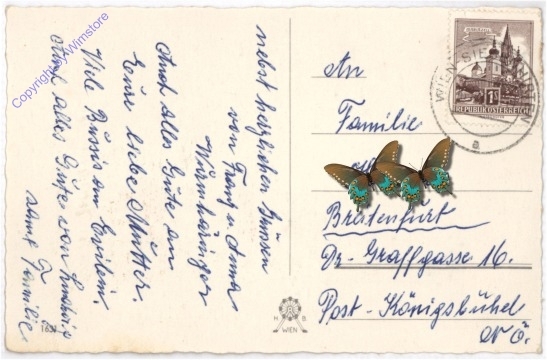 nebst herzlichen Grüssen
von Franz u. Anna
Auch alles Gute an
Eure liebe Mutter.
Viele Bussis an Evilein.
Und alles Gute von
samt Familie
1651
H B
WIEN
An
Familie
Breitenfurt
Dr-Graffgasse 16.
Post-Königsbühel
N Ö.
MARIAZELL
1S
REPUBLIK ÖSTERREICH
WIEN
a
Copyright by Wimstore